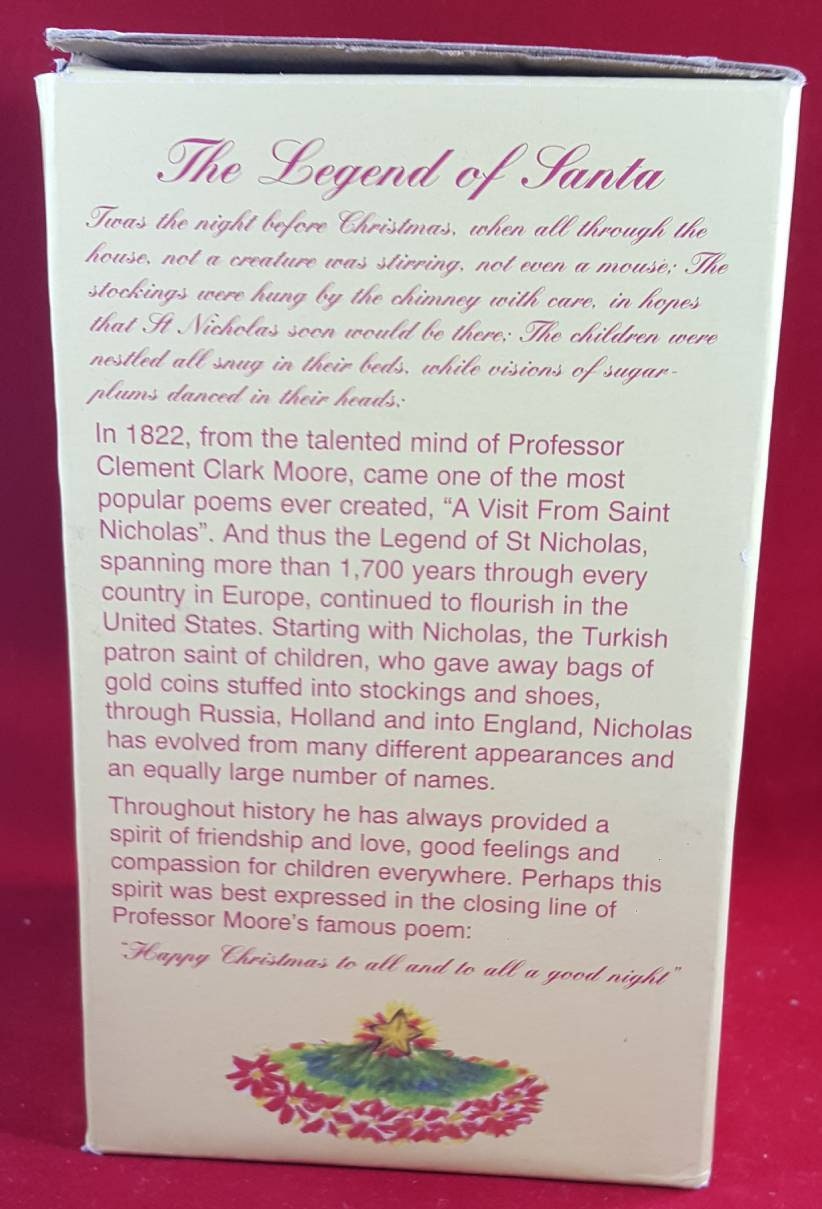 The Legend of Santa
Twas the night before Christmas, when all through the
house, not a creature was stirring, not even a mouse; The
stockings were hung by the chimney with care, in hopes
that St Nicholas soon would be there; The children were
nestled all snug in their beds, while visions of sugar-
plums danced in their heads;
In 1822, from the talented mind of Professor
Clement Clark Moore, came one of the most
popular poems ever created, “A Visit From Saint
Nicholas”. And thus the Legend of St Nicholas,
spanning more than 1,700 years through every
country in Europe, continued to flourish in the
United States. Starting with Nicholas, the Turkish
patron saint of children, who gave away bags of
gold coins stuffed into stockings and shoes,
through Russia, Holland and into England, Nicholas
has evolved from many different appearances and
an equally large number of names.
Throughout history he has always provided a
spirit of friendship and love, good feelings and
compassion for children everywhere. Perhaps this
spirit was best expressed in the closing line of
Professor Moore's famous poem:
"Happy Christmas to all and to all a good night"